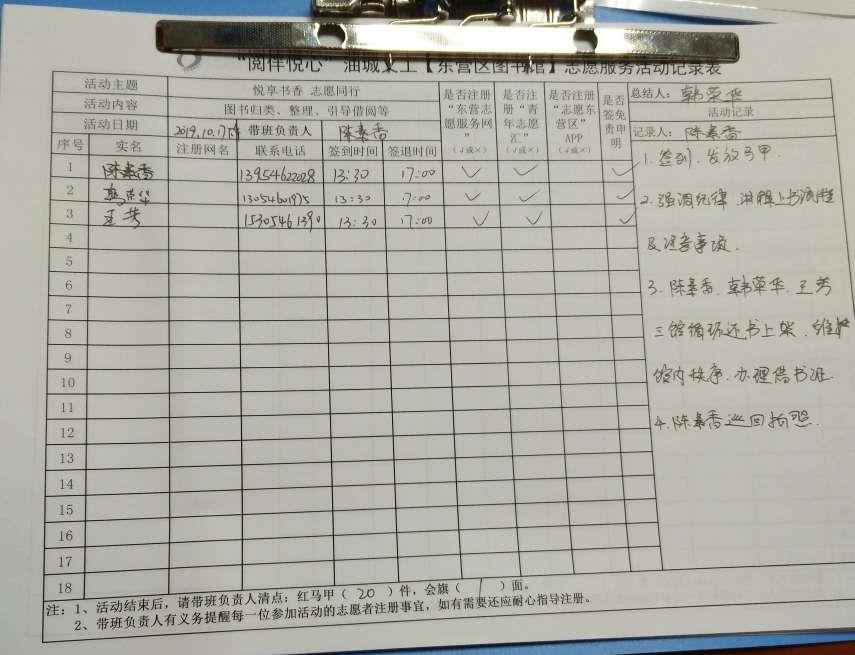 "阅伴悦心"油城义工【东营区图书馆】志愿服务活动记录表
活动主题 悦享书香 志愿同行
活动内容 图书归类、整理、引导借阅等
活动日期 2019.10.17下 带班负责人 陈素香
序号 实名 注册网名 联系电话 签到时间 签退时间 是否注册"东营志愿服务网"(√或×) 是否注册"青年志愿汇"(√或×) 是否注册"志愿东营区"APP(√或×) 是否签免责申明
总结人: 韩荣华
活动记录
记录人: 陈素香
1 陈素香 13954622028 13:30 17:00 √ √ √
2 韩荣华 13:30 17:00 √ √ √
3 王芳 13:30 17:00 √ √ √
4
5
6
7
8
9
10
11
12
13
14
15
16
17
18
1. 签到、发放马甲.
2. 强调纪律、讲解上书流程
及注意事项.
3. 陈素香、韩荣华、王芳
三馆循环还书上架、维护
馆内秩序、办理借书证.
4. 陈素香巡回拍照.
注: 1、活动结束后，请带班负责人清点：红马甲（ 20 ）件，会旗（ 1 ）面。
2、带班负责人有义务提醒每一位参加活动的志愿者注册事宜，如有需要还应耐心指导注册。